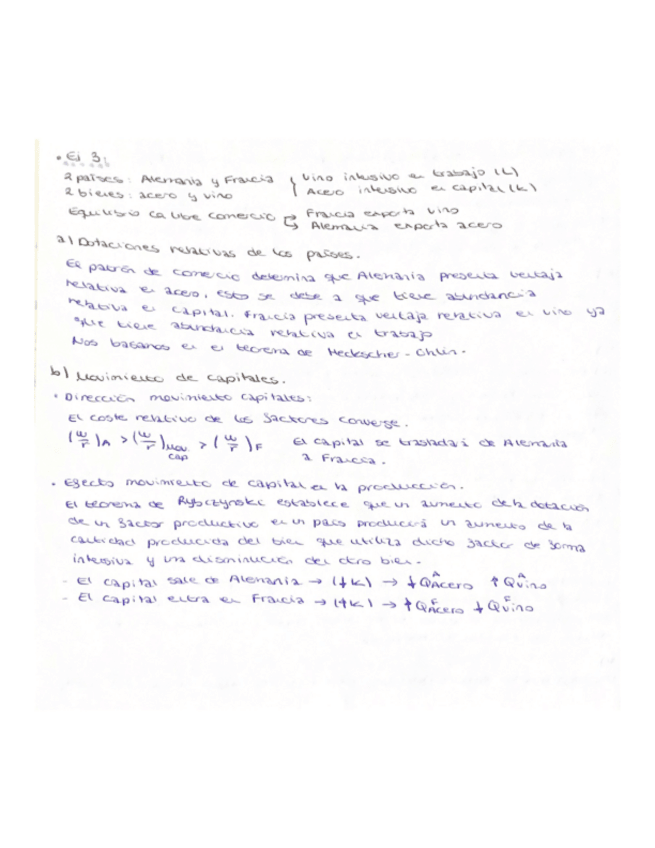 • Ej 3.
2 países: Alemania y Francia { Vino intensivo en trabajo (L)
2 bienes: acero y vino Acero intensivo en capital (K)
Equilibrio en libre comercio → Francia exporta vino
→ Alemania exporta acero
a) Dotaciones relativas de los países.
El patrón de comercio determina que Alemania presenta ventaja
relativa en acero, esto se debe a que tiene abundancia
relativa en capital. Francia presenta ventaja relativa en vino ya
que tiene abundancia relativa en trabajo
Nos basamos en el teorema de Heckscher-Ohlin.
b) Movimiento de capitales.
• Dirección movimiento capitales:
El coste relativo de los factores converge.
(w/r)A > (w/r)mov cap > (w/r)F El capital se trasladará de Alemania
a Francia.
• Efecto movimiento de capital en la producción.
El teorema de Rybczynski establece que un aumento de la dotación
de un factor productivo en un país producirá un aumento de la
cantidad producida del bien que utiliza dicho factor de forma
intensiva y una disminución del otro bien.
- El capital sale de Alemania → (↓K) → ↓Q^A Acero ↑Q^A Vino
- El capital entra en Francia → (↑K) → ↑Q^F Acero ↓Q^F Vino